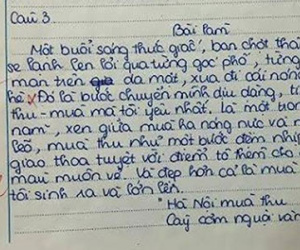 Câu 3.
Bài làm
Một buổi sáng thức giấc, bạn chợt thấ
se lạnh len lỏi qua từng góc phố, từng
mơn trên da một, xua đi cái nóng
hè. Đó là bước chuyển mình dịu dàng, t
thu - mùa mà tôi yêu nhất, là một tro
năm, xen giữa mùa hạ nóng nực và m
lẽo, mùa thu như một bước đệm nhẹ
giao thoa tuyệt vời điểm tô thêm cho
màu muôn vẻ. Và đẹp hơn cả là mùa
tôi sinh ra và lớn lên.
Hà Nội mùa thu
Cây cơm nguội vàn